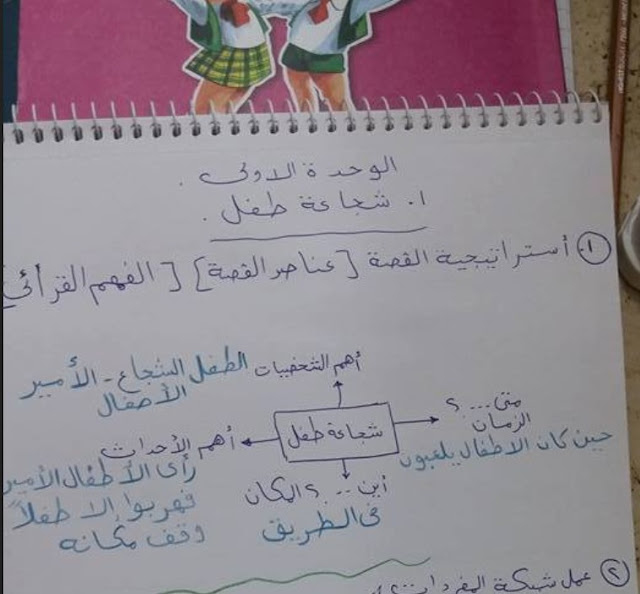 الوحدة الاولى
١. شجاعة طفل .
١. أستراتيجية القصة [عناصر القصة] [الفهم القرائي]
أهم الشخصيات
الطفل الشجاع - الأمير
الأطفال
متى ... ؟
الزمان
حين كان الاطفال يلعبون
شجاعة طفل
أهم الأحداث
رأى الأطفال الأمير
فهربوا إلا طفلاً
وقف مكانه
أين ... ؟ المكان
في الطريق
٢ عمل شبكة المفردات